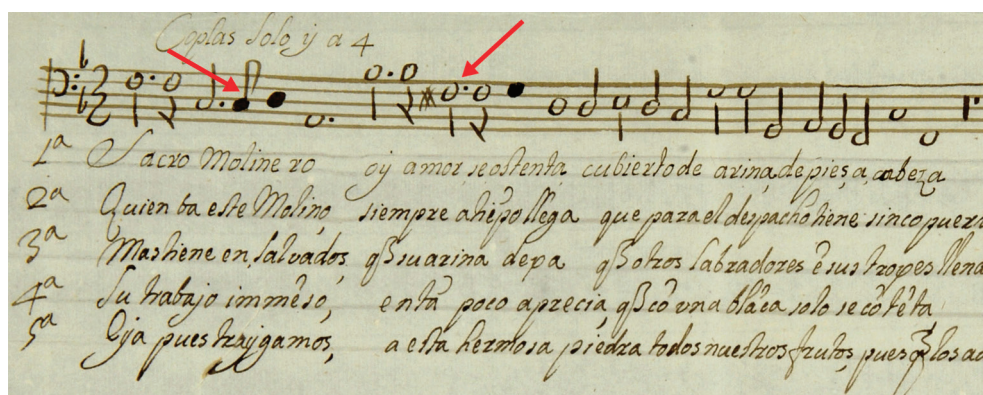 Coplas solo y a 4
1ª Sacro Molinero oy amor, se ostenta cubierto de arina, de pies, a, cabeza
2ª Quien ba este Molino siempre a llega que para el despacho tiene sinco puer
3ª Mas tiene en, salvados, su arina depa otros labradores è sus tropes llena
4ª Su trabajo immẽso, entã poco aprecia, cõ vna blãca solo se cõtẽta
5ª pues traygamos, a esta hermosa piedra todos nuestros frutos, pues los